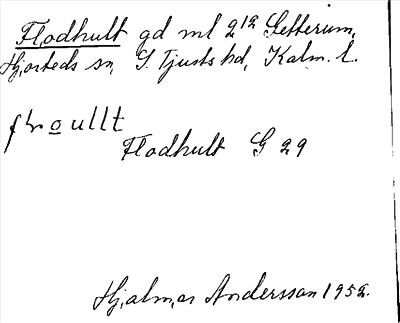 Flodhult gd ml 2 12 Setterum,
Hjorteds sn, S. Tjusts hd, Kalm. l.
flroullt
Flodhult G 29
Hjalmar Andersson 1952.